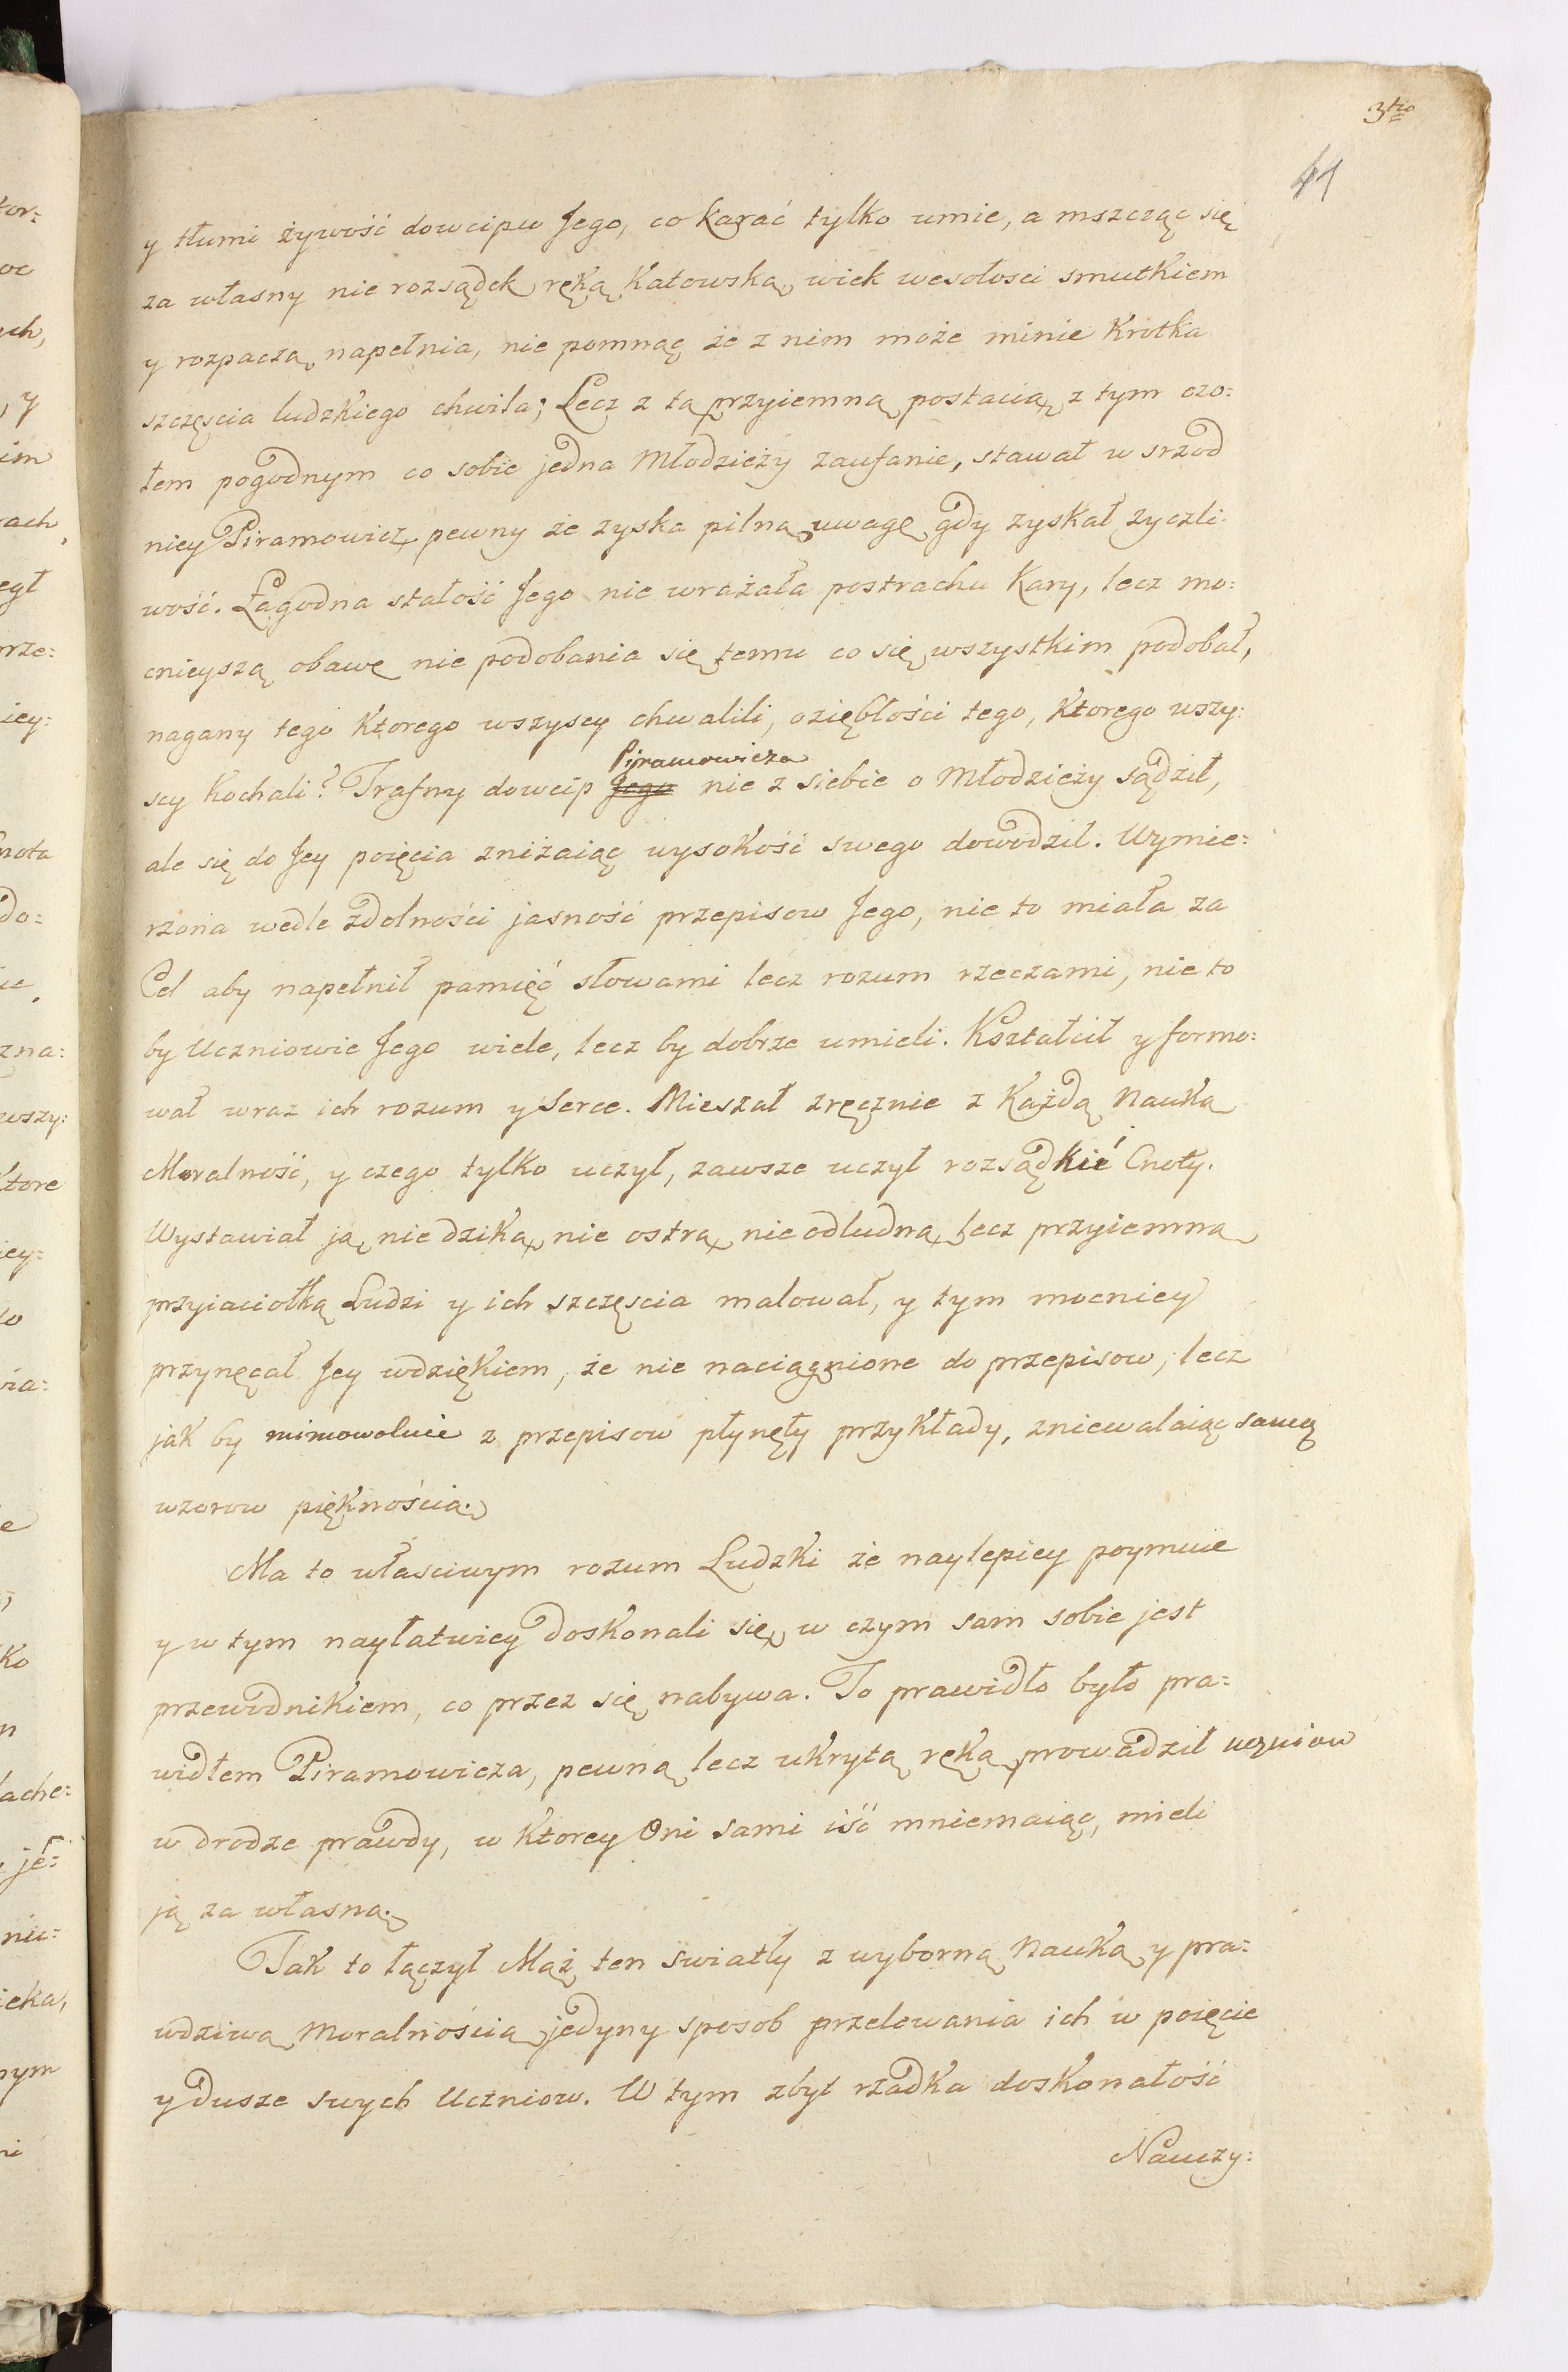 3tio
41
y tłumi żywość dowcipu Jego, co karać tylko umie, a mszcząc się
za własny nie rozsądek ręką Katowską, wiek wesołosci smutkiem
y rozpaczą napełnia, nie pomnąc że z nim może minie Krotka
szczęscia ludzkiego chwila; Lecz z tą przyiemną postacią, z tym czo=
łem pogodnym co sobie jedna Młodzieży zaufanie, stawał w srzod
niey Piramowicz, pewny że zyska pilną uwagę gdy zyskał zyczli=
wość. Łagodna stałość Jego nie wrażała postrachu Kary, lecz mo=
cnieyszą obawę nie podobania się temu co się wszystkim podobał,
nagany tego Ktorego wszyscy chwalili, oziębłości tego, Ktorego wszy=
scy Kochali? Trafny dowcip Jego Piramowicza nie z siebie o Młodzieży sądził,
ale się do Jey poięcia zniżaiąc wysokość swego dowodził. Wymie=
rzona wedle zdolności jasność przepisow Jego, nie to miała za
Cel aby napełnił pamięć słowami lecz rozum rzeczami, nie to
by Uczniowie Jego wiele, lecz by dobrze umieli. Kształcił y formo=
wał wraz ich rozum y Serce. Mieszał zręcznie z Każdą Nauką
Moralność, y czego tylko uczył, zawsze uczył rozsądkié Cnoty.
Wystawiał ją nie dziką, nie ostrą, nie odludną, lecz przyiemną
przyiaciołką Ludzi y ich szczęscia malował, y tym mocniey
przynęcał Jey wdziękiem, że nie naciągnione do przepisow, lecz
jak by mimowolnie z przepisow płynęły przykłady, zniewalaiąc samą
wzorow pięknością.
Ma to własciwym rozum Ludzki że naylepiey poymuie
y w tym nayłatwiey doskonali się, w czym sam sobie jest
przewodnikiem, co przez się nabywa. To prawidło było pra=
widłem Piramowicza, pewną lecz ukrytą ręką prowadził uczniow
w drodze prawdy, w Ktorey Oni sami iść mniemaiąc, mieli
ją za własną.
Tak to łączył Mąż ten swiatły z wyborną Nauką y pra=
wdziwą Moralnością jedyny sposob przelewania ich w poięcie
y dusze swych Uczniow. W tym zbyt rzadka doskonałość
Nauczy=